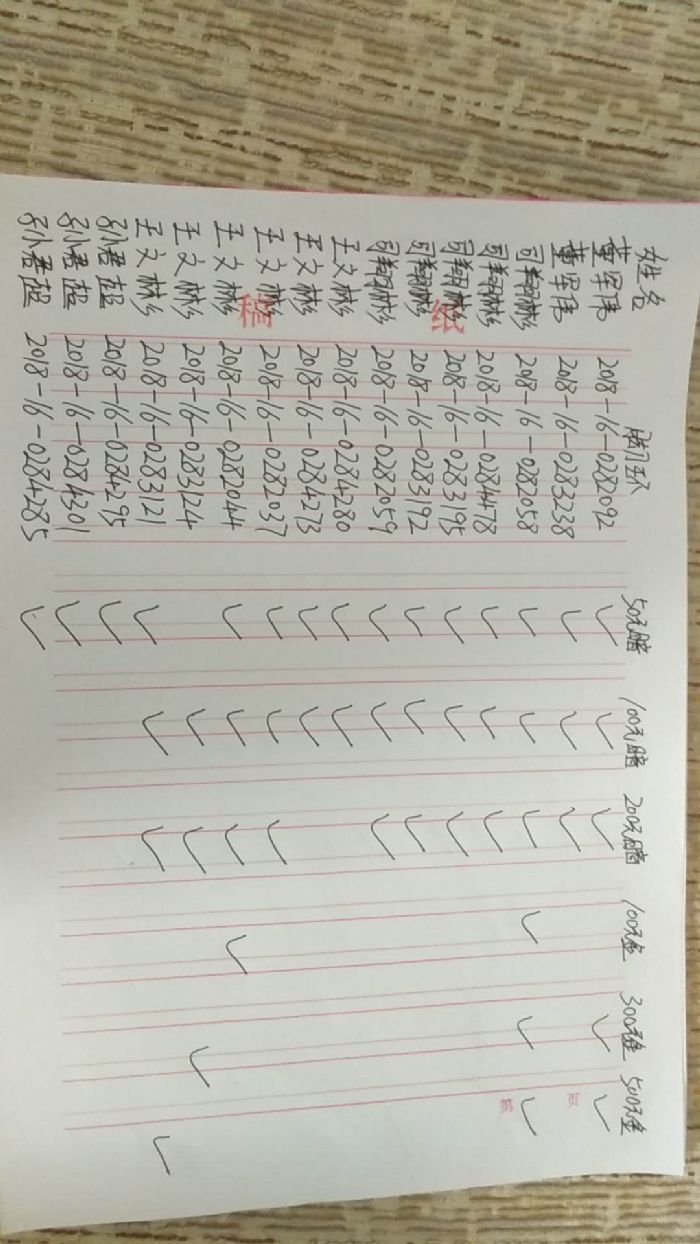 姓名 脚环 50元暗 100元暗 200元暗 100元 300元 500元
董军伟 2018-16-0282092 ✓ ✓ ✓ ✓ ✓
董军伟 2018-16-0283238 ✓ ✓ ✓
司翔彬 2018-16-0282058 ✓ ✓ ✓ ✓ ✓ ✓
司翔彬 2018-16-0284478 ✓ ✓ ✓
司翔彬 2018-16-0283195 ✓ ✓ ✓
司翔彬 2018-16-0283192 ✓ ✓ ✓
司翔彬 2018-16-0282059 ✓ ✓ ✓
王文彬 2018-16-0284280 ✓ ✓
王文彬 2018-16-0284273 ✓ ✓
王文彬 2018-16-0282037 ✓ ✓ ✓
王文彬 2018-16-0282044 ✓ ✓ ✓ ✓
王文彬 2018-16-0283124 ✓ ✓ ✓
王文彬 2018-16-0283121 ✓ ✓ ✓ ✓
孙君超 2018-16-0284295 ✓
孙君超 2018-16-0284301 ✓
孙君超 2018-16-0284285 ✓
稿纸
第 页